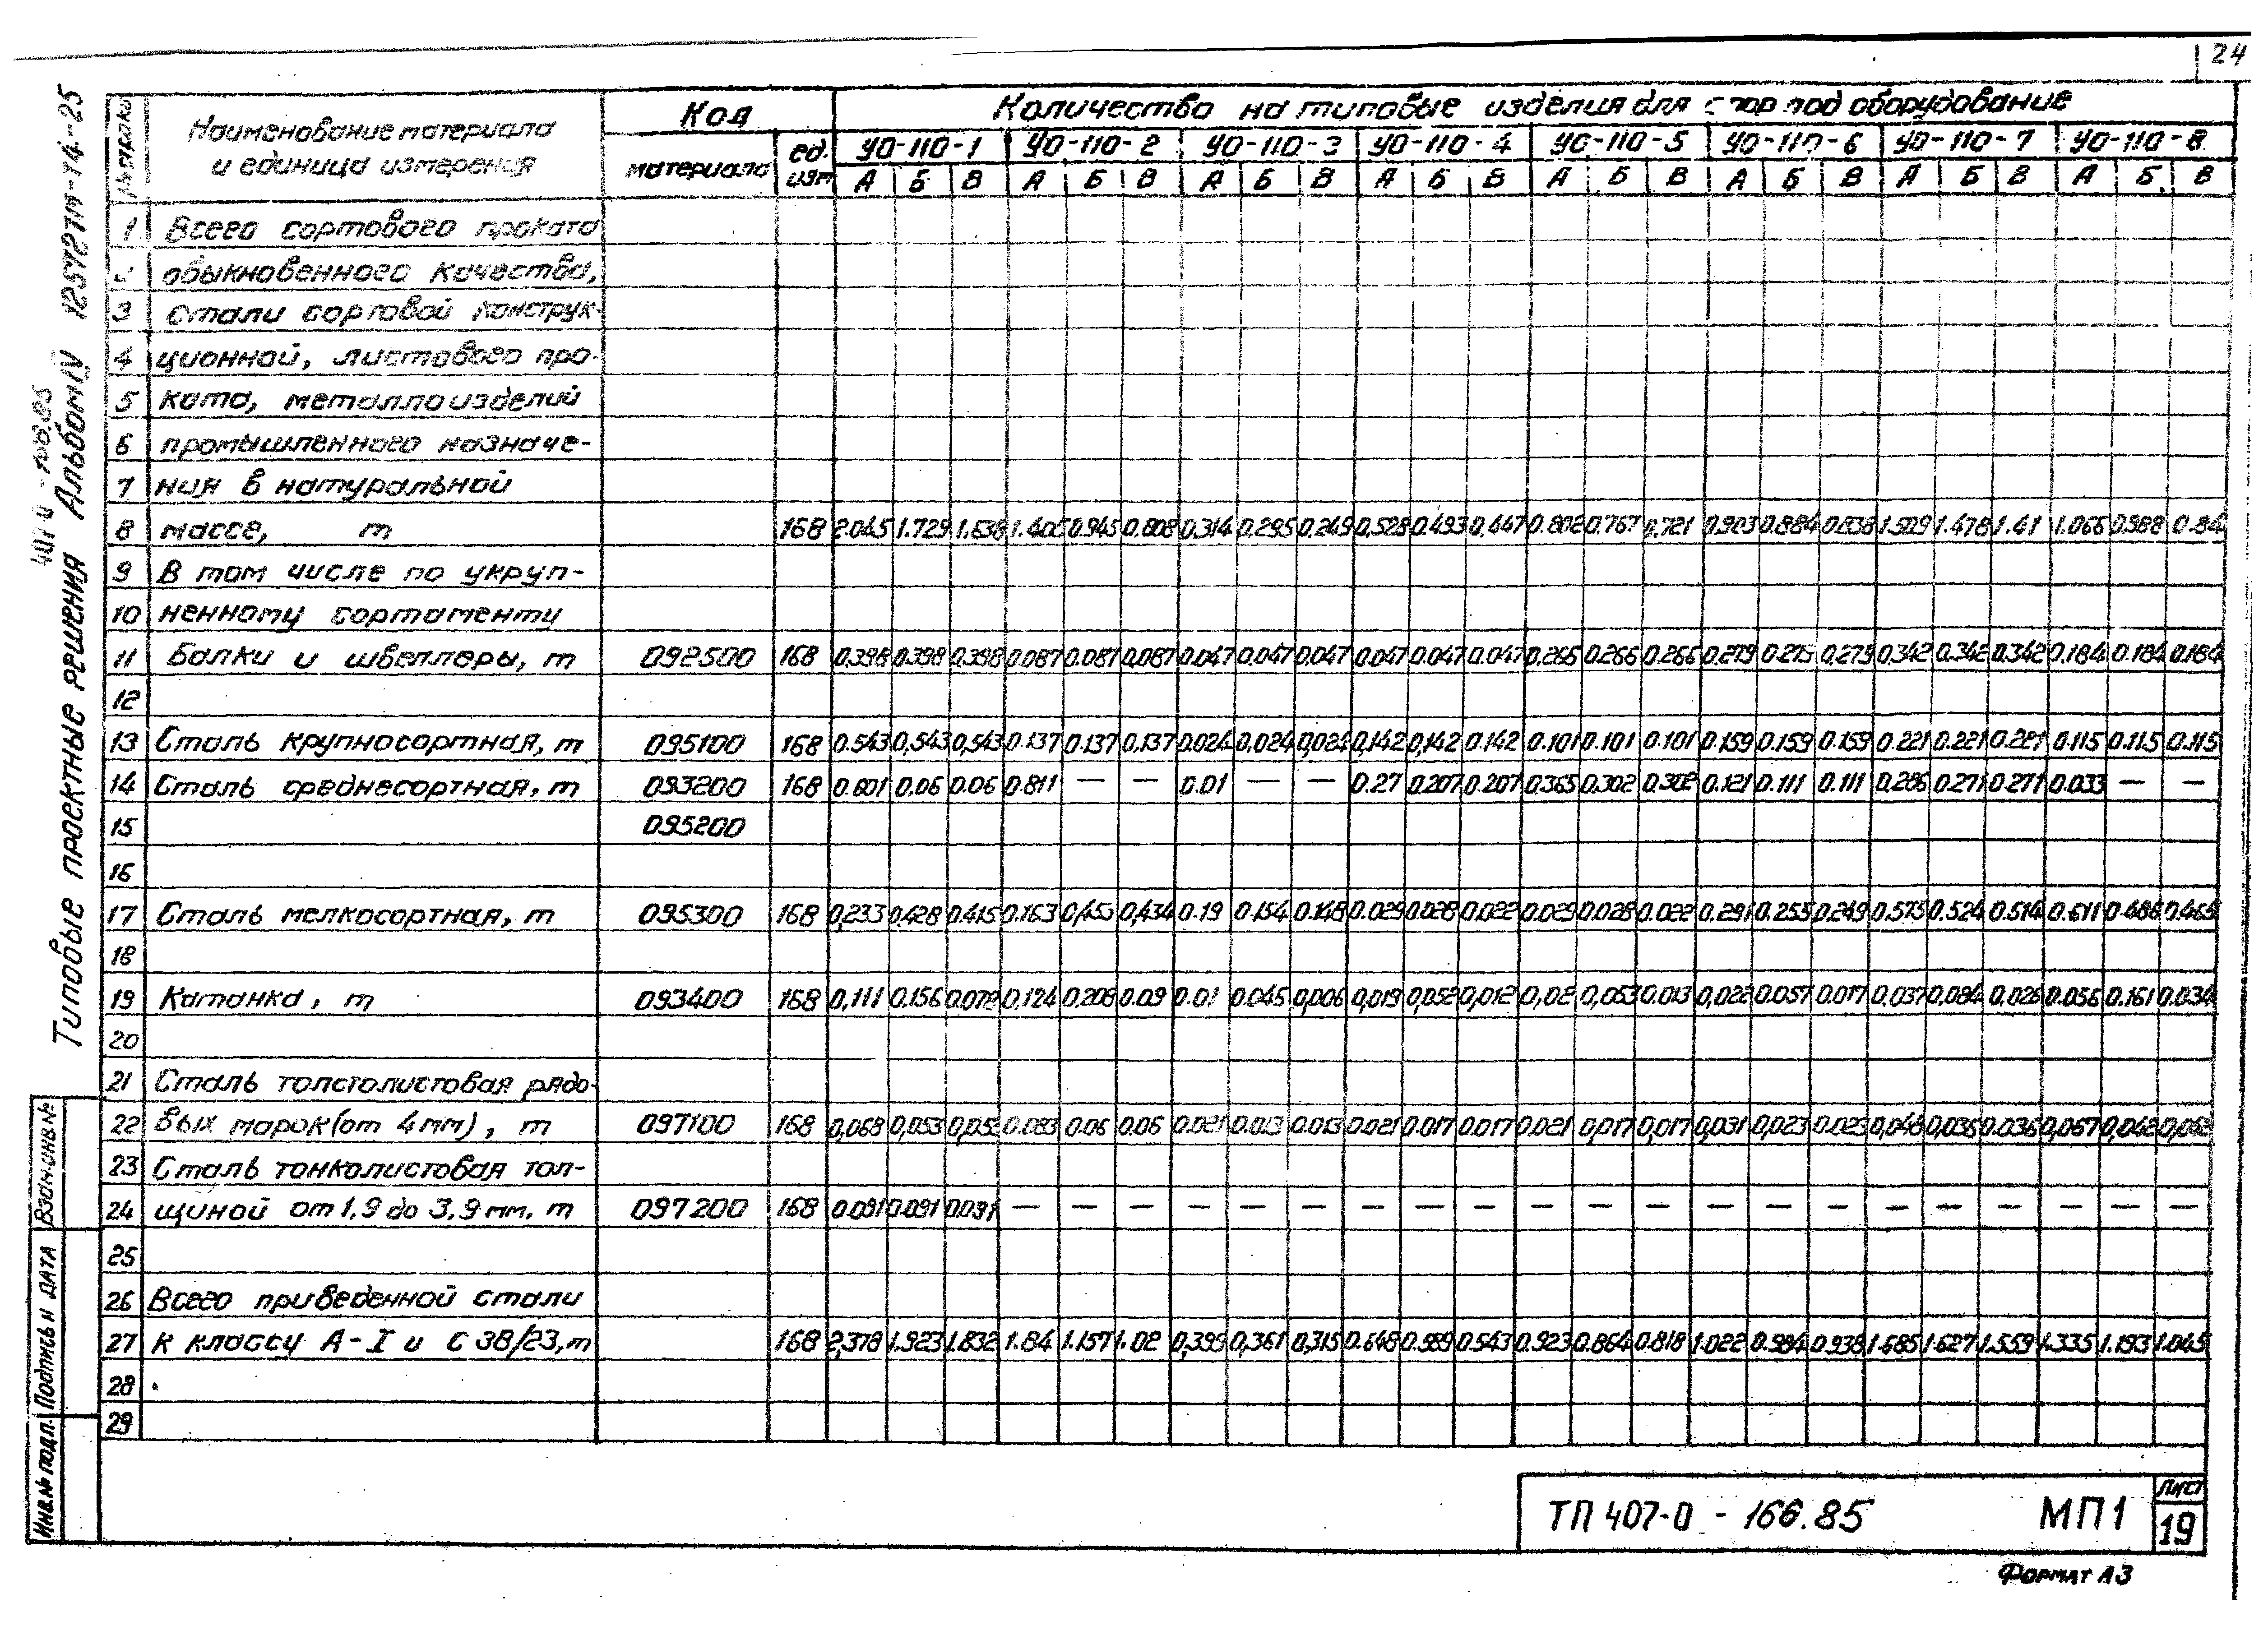 24
Типовые проектные решения Альбом IV 12572тм-т4-25
№ строки
Наименование материала и единица измерения
Код
Количество на типовые изделия для опор под оборудование
материала ед. изм
УО-110-1 УО-110-2 УО-110-3 УО-110-4 УО-110-5 УО-110-6 УО-110-7 УО-110-8
А Б В А Б В А Б В А Б В А Б В А Б В А Б В А Б В
1 Всего сортового проката
2 обыкновенного качества,
3 стали сортовой конструк-
4 ционной, листового про-
5 ката, металлоизделий
6 промышленного назначе-
7 ния в натуральной
8 массе, т 168 2.045 1.729 1.638 1.405 0.945 0.808 0.314 0.295 0.249 0.528 0.493 0.447 0.802 0.767 0.721 0.903 0.884 0.838 1.509 1.478 1.41 1.066 0.988 0.84
9 В том числе по укруп-
10 ненному сортаменту
11 Балки и швеллеры, т 092500 168 0.398 0.398 0.398 0.087 0.087 0.087 0.047 0.047 0.047 0.047 0.047 0.047 0.266 0.266 0.266 0.279 0.279 0.279 0.342 0.342 0.342 0.184 0.184 0.184
12
13 Сталь крупносортная, т 095100 168 0.543 0,543 0,543 0.137 0.137 0,137 0.024 0,024 0,024 0,142 0,142 0.142 0.101 0.101 0.101 0.159 0.159 0.159 0.221 0.221 0.221 0.115 0.115 0.115
14 Сталь среднесортная, т 093200 168 0.601 0.06 0.06 0.811 — — 0.01 — — 0.27 0.207 0.207 0.365 0.302 0.302 0.121 0.111 0.111 0.286 0.271 0.271 0.033 — —
15 095200
16
17 Сталь мелкосортная, т 095300 168 0,233 0.428 0.415 0.163 0,453 0,434 0.19 0.154 0.148 0.029 0.028 0.022 0.029 0.028 0.022 0.291 0.255 0.249 0.575 0.524 0.514 0.611 0.486 0.465
18
19 Катанка, т 093400 168 0,111 0.156 0.078 0.124 0,208 0.09 0.01 0.045 0,006 0,019 0,052 0,012 0,02 0,053 0.013 0,022 0.057 0.017 0,037 0,084 0.026 0.056 0.161 0.034
20
21 Сталь толстолистовая рядо-
22 вых марок (от 4 мм), т 097100 168 0,068 0,053 0,053 0.083 0.06 0.06 0.021 0.013 0.013 0.021 0.017 0.017 0.021 0,017 0,017 0,031 0,023 0.023 0,046 0,036 0.036 0,067 0,042 0,042
23 Сталь тонколистовая тол-
24 щиной от 1,9 до 3,9 мм, т 097200 168 0.091 0.091 0.091 — — — — — — — — — — — — — — — — — — — — —
25
26 Всего приведенной стали
27 к классу А-I и С 38/23, т 168 2,378 1.923 1.832 1.84 1.157 1.02 0,399 0,361 0,315 0.648 0.589 0.543 0.923 0.864 0.818 1.022 0.984 0.938 1.685 1.627 1.559 1.335 1.193 1.045
28
29
Инв.№ подл. Подпись и дата Взам.инв.№
ТП 407-0 - 166.85 МП1
Лист
19
Формат А3